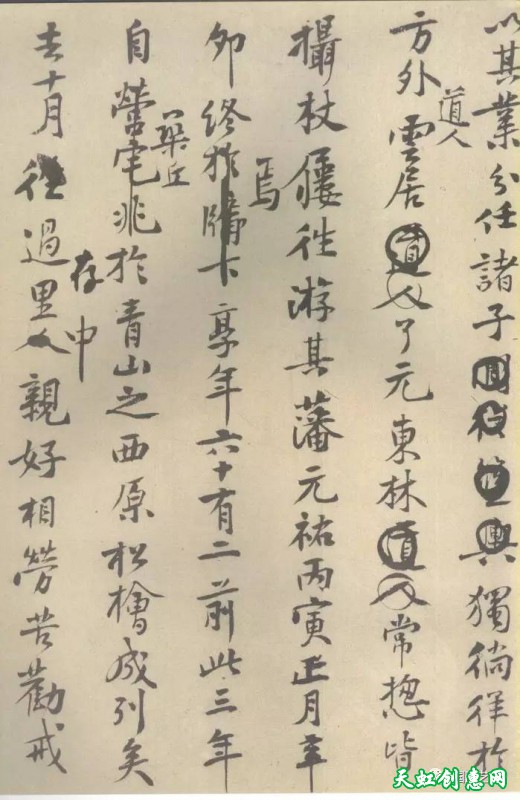 以其業分任諸子獨徜徉於
道人
方外雲居道人了元東林道人常惣皆
攝杖屨徃游其藩元祐丙寅正月辛
焉
卯終於牖下享年六十有二前此三年
築丘
自營宅兆於青山之西原松檜成列矣
存申
去十月徃過里人親好相勞苦勸戒
天虹创意网